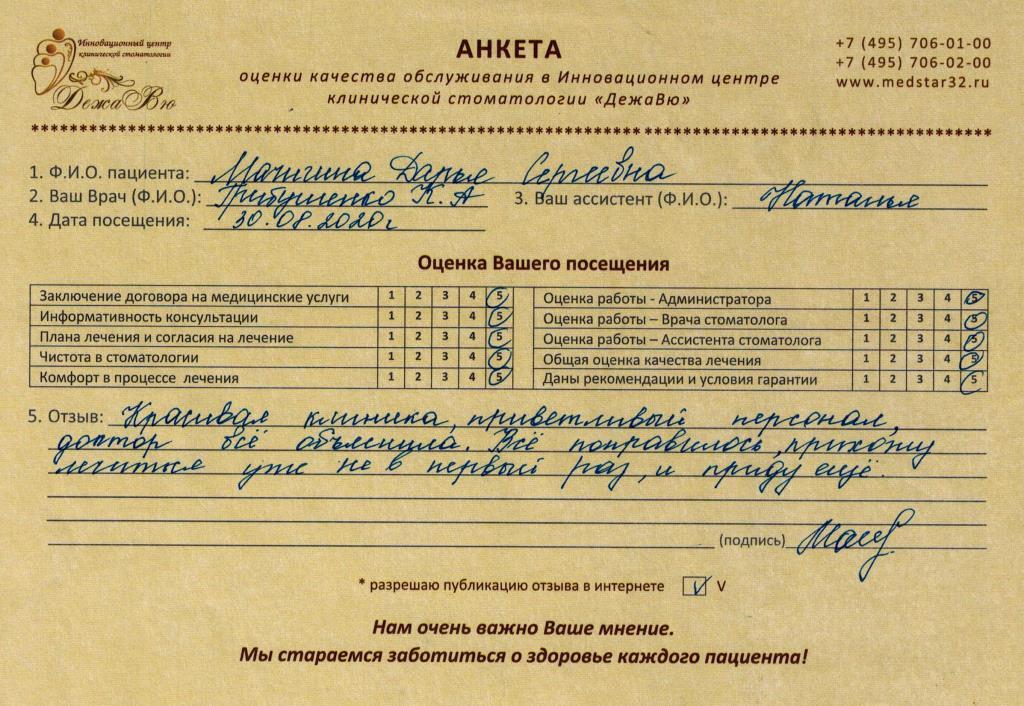 Инновационный центр
клинической стоматологии
ДежаВю
АНКЕТА
оценки качества обслуживания в Инновационном центре
клинической стоматологии «ДежаВю»
+7 (495) 706-01-00
+7 (495) 706-02-00
www.medstar32.ru
1. Ф.И.О. пациента: Дарья Сергеевна
2. Ваш Врач (Ф.И.О.): К. А 3. Ваш ассистент (Ф.И.О.): Наталья
4. Дата посещения: 30.08.2020г
Оценка Вашего посещения
Заключение договора на медицинские услуги 1 2 3 4 5
Информативность консультации 1 2 3 4 5
Плана лечения и согласия на лечение 1 2 3 4 5
Чистота в стоматологии 1 2 3 4 5
Комфорт в процессе лечения 1 2 3 4 5
Оценка работы - Администратора 1 2 3 4 5
Оценка работы – Врача стоматолога 1 2 3 4 5
Оценка работы – Ассистента стоматолога 1 2 3 4 5
Общая оценка качества лечения 1 2 3 4 5
Даны рекомендации и условия гарантии 1 2 3 4 5
5. Отзыв: Красивая клиника, приветливый персонал,
доктор всё объяснила. Всё понравилось, прихожу
лечиться уже не в первый раз, и приду ещё.
(подпись)
* разрешаю публикацию отзыва в интернете V V
Нам очень важно Ваше мнение.
Мы стараемся заботиться о здоровье каждого пациента!